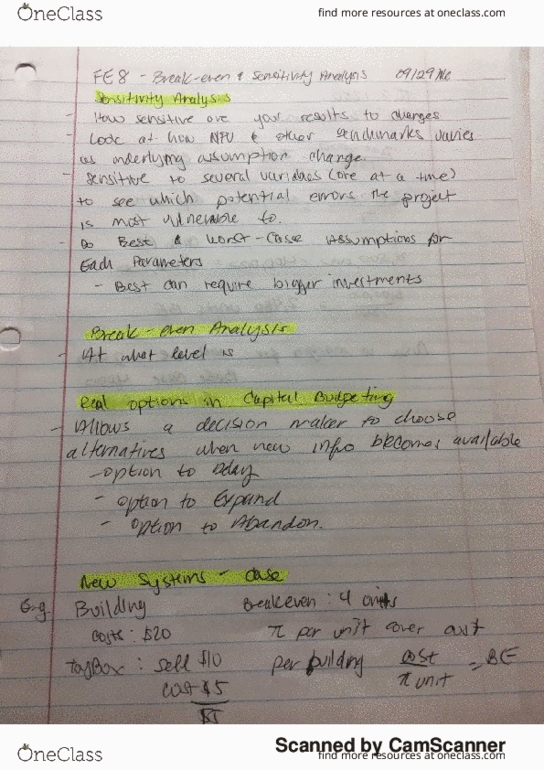 OneClass
find more resources at oneclass.com
FE8 - Break-even & Sensitivity Analysis 09/29
Sensitivity Analysis
- How sensitive are your results to changes
- Look at how NPV & other benchmarks varies
as underlying assumption change.
- Sensitive to several variables (one at a time)
to see which potential errors the project
is most vulnerable to.
- Do Best & Worst-Case Assumptions for
Each Parameters
- Best can require bigger investments
Break-even Analysis
- At what level is
Real options in Capital Budgeting
- Allows a decision maker to choose
alternatives when new info becomes available
- option to Delay
- option to Expand
- option to Abandon.
New Systems - Case
E.g. Building Breakeven: 4 units
costs: $20 π per unit cover cost
ToyBox: sell $10 per building cost = BE
cost $5 π unit
$5
Scanned by CamScanner
OneClass
find more resources at oneclass.com